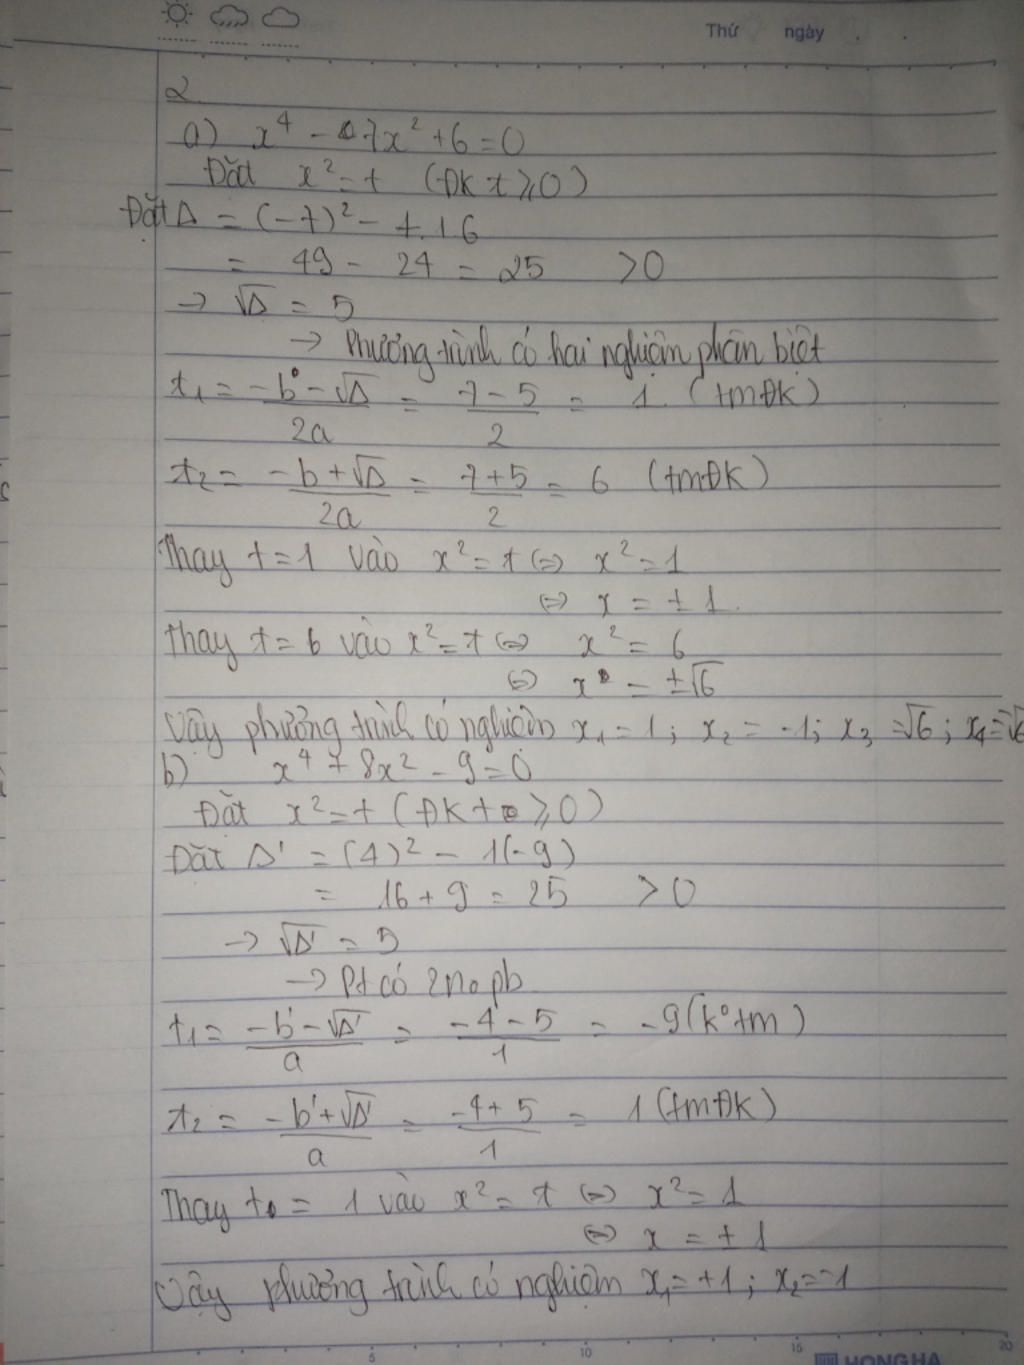 Thứ ngày
2
a) x⁴ - 7x² + 6 = 0
Đặt x² = t (ĐK t ≥ 0)
Đặt Δ = (-7)² - 4.1.6
= 49 - 24 = 25 > 0
→ √Δ = 5
→ Phương trình có hai nghiệm phân biệt
t₁ = (-b - √Δ)/2a = (7 - 5)/2 = 1 (tmĐK)
t₂ = (-b + √Δ)/2a = (7 + 5)/2 = 6 (tmĐK)
Thay t = 1 vào x² = t ⇔ x² = 1
⇔ x = ±1
Thay t = 6 vào x² = t ⇔ x² = 6
⇔ x = ±√6
Vậy phương trình có nghiệm x₁ = 1; x₂ = -1; x₃ = √6; x₄ = -√6
b) x⁴ + 8x² - 9 = 0
Đặt x² = t (ĐK t ≥ 0)
Đặt Δ' = (4)² - 1(-9)
= 16 + 9 = 25 > 0
→ √Δ' = 5
→ Pt có 2 no pb
t₁ = (-b' - √Δ')/a = (-4 - 5)/1 = -9 (k° tm)
t₂ = (-b' + √Δ')/a = (-4 + 5)/1 = 1 (tmĐK)
Thay t = 1 vào x² = t ⇔ x² = 1
⇔ x = ±1
Vậy phương trình có nghiệm x₁ = +1; x₂ = -1
5 10 15 20
HONG HA